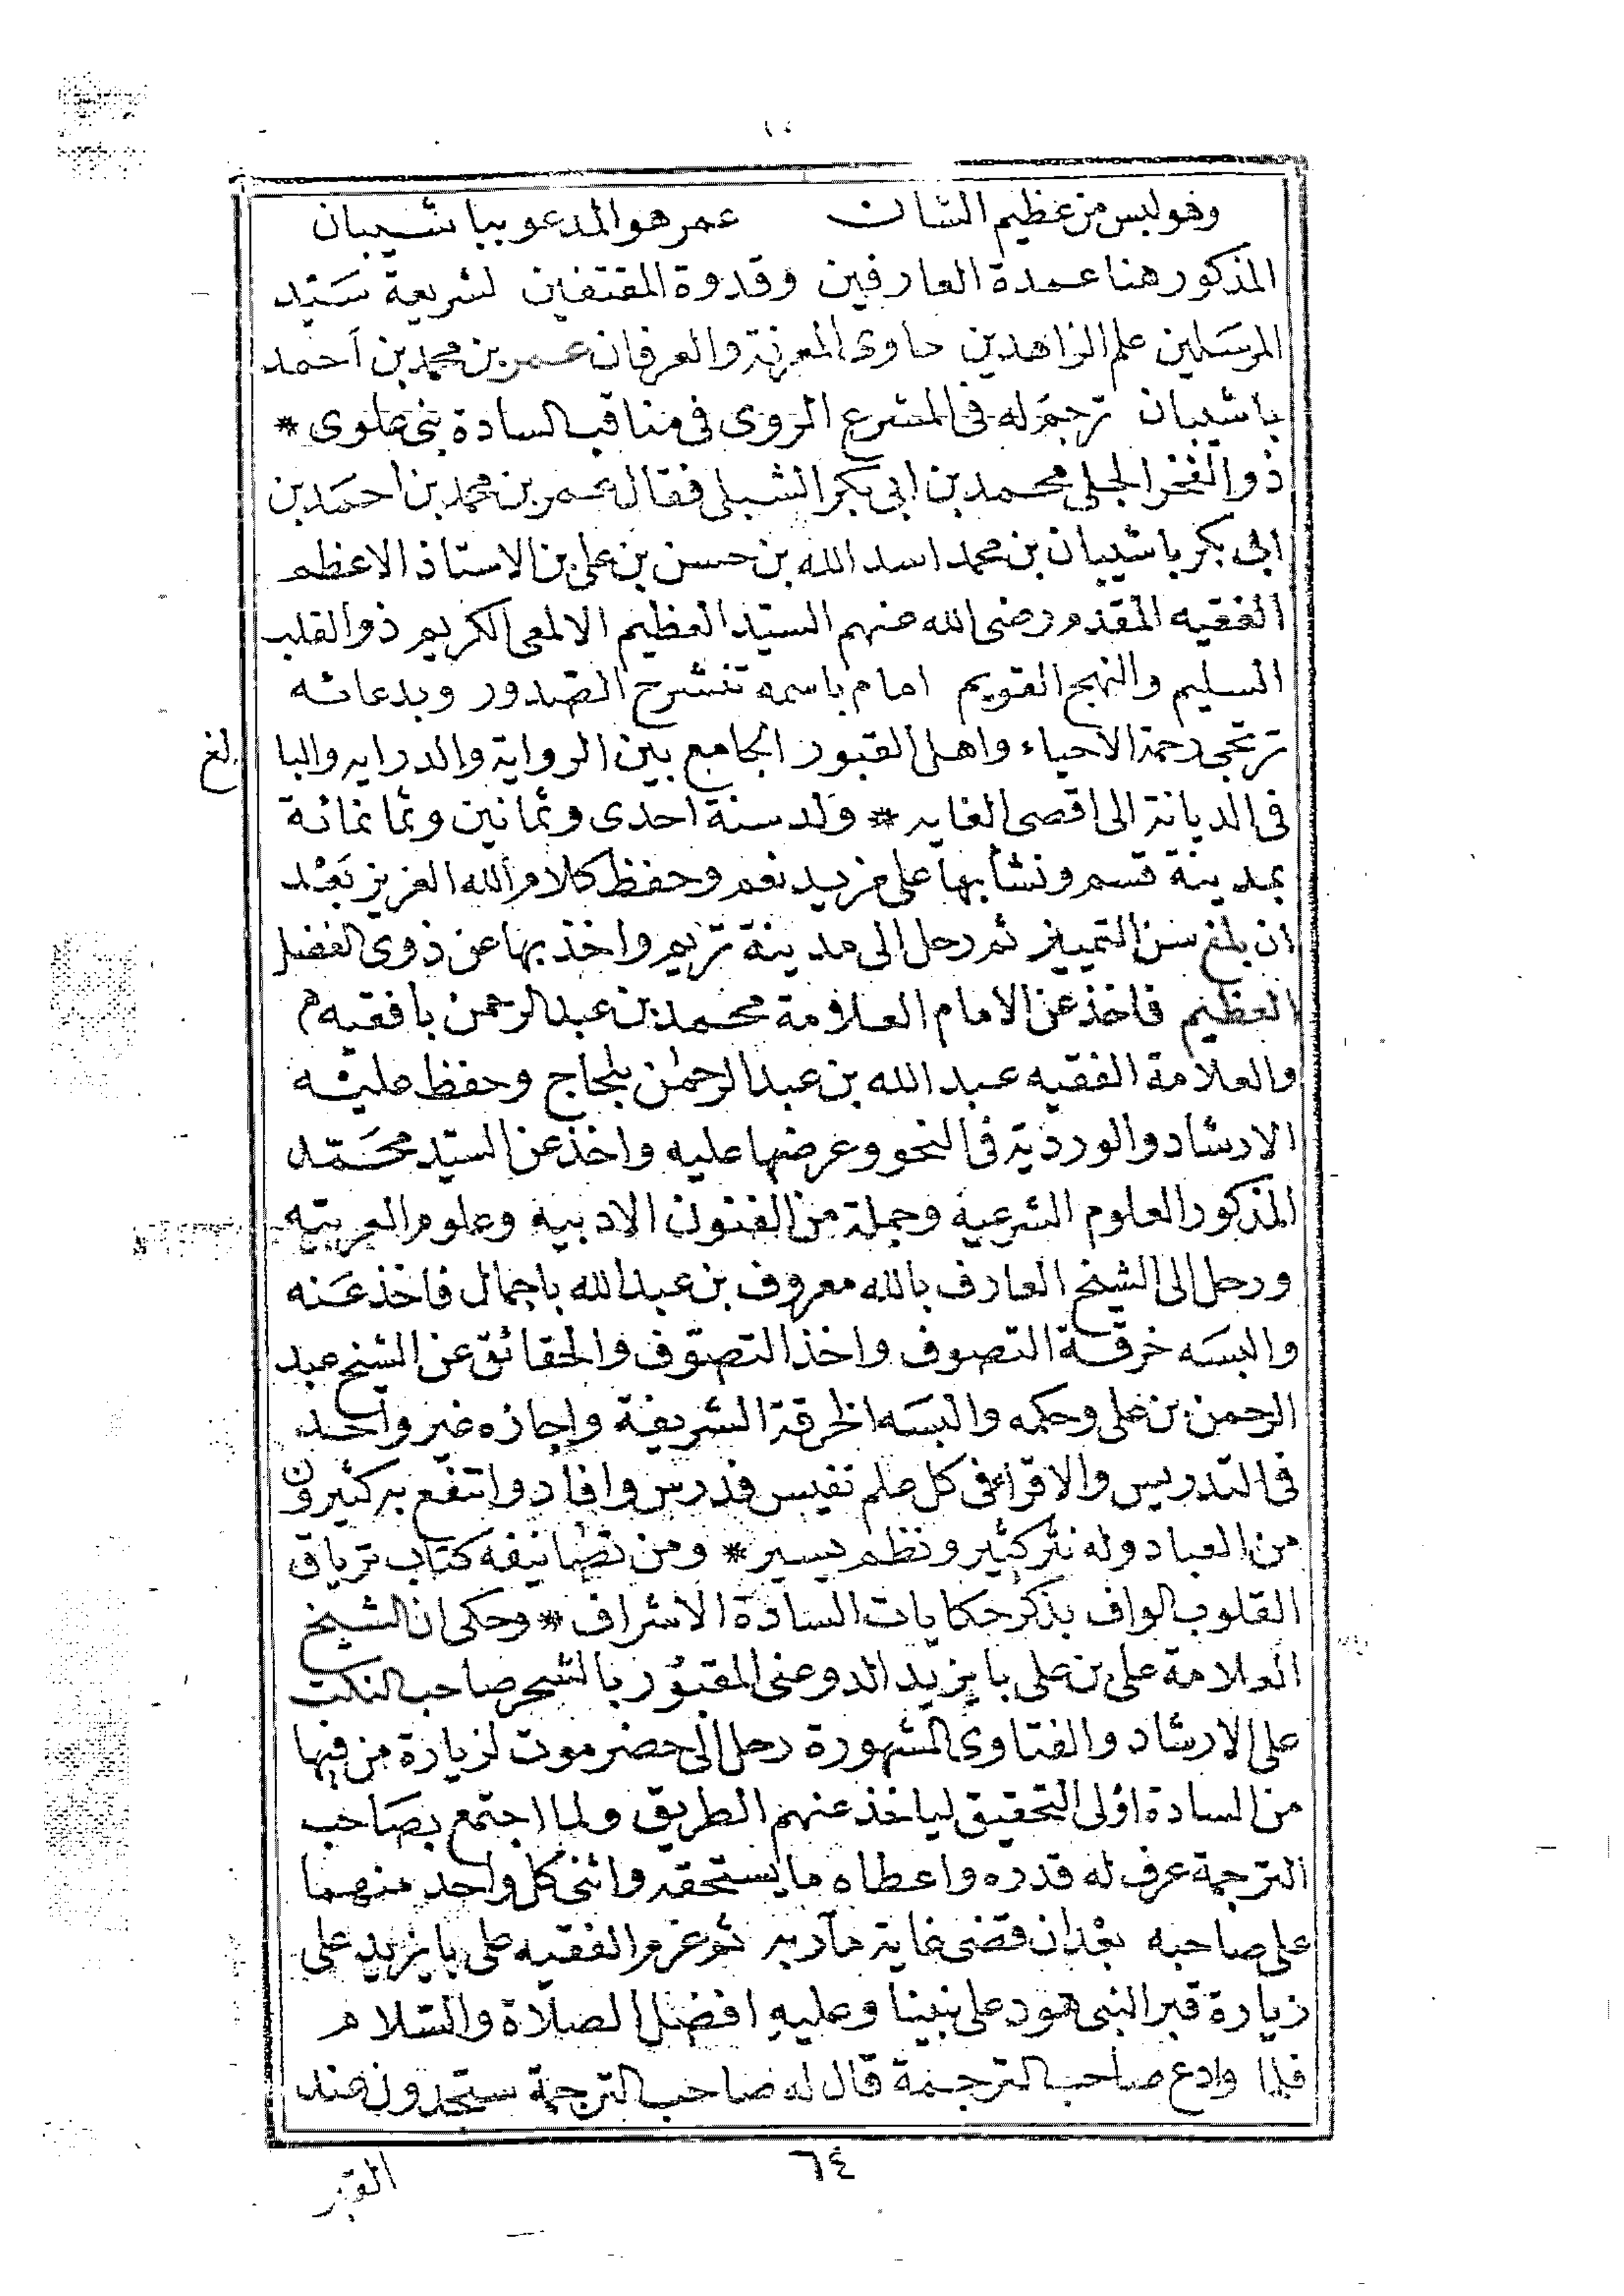 وهو لبس من عظيم الشان عمر هو المدعو ببا شيبان
المذكور هنا عمدة العارفين وقدوة المقتفين لشريعة سَيّد
المرسَلين علم الزاهدين حاوى المعرفة والعرفان عمر بن محمد بن أحمد
باشيبان ترجم له فى المشرع الروى فى مناقب السادة بنى علوى *
ذو الفخر الجلى محمد بن ابى بكر الشبلى فقال عمر بن محمد بن احمَد بن
ابى بكر باشيبان بن محمد اسد الله بن حسن بن على بن الاستاذ الاعظم
الفقيه المقدم رضى الله عنهم السيّد العظيم الالمعى الكريم ذو القلب
السليم والنهج القويم امام باسمه تنشرح الصدور وبدعائه
ترتجى رحمة الاحياء واهل القبور الجامع بين الرواية والدرايه والبا لغ
فى الديانة الى اقصى الغايه * ولد سنة احدى وثمانين وثمانمائة
بمدينة قسم ونشأ بها على مزيد نعم وحفظ كلام الله العزيز بَعْد
ان بلغ سن التمييز ثم رحل الى مدينة تريم واخذ بها عن ذوى الفضل
العظيم فاخذ عن الامام العلامة محمد بن عبد الرحمن بافقيه م
والعلامة الفقيه عبد الله بن عبد الرحمٰن بلحاج وحفظ عليه
الارشاد والوردية فى النحو وعرضها عليه واخذ عن السيّد محَمّد
المذكور العلوم الشرعيه وجملة من الفنون الادبيه وعلوم العربيّه
ورحل الى الشيخ العارف بالله معروف بن عبد الله باجمال فاخذ عَنه
والبسَه خرقة التصوف واخذ التصوّف والحقائق عن الشيخ عبد
الرحمن بن على وحكمه والبسَه الخرقة الشريفة واجازه غير واحد
فى التدريس والاقراء فى كل علم نفيس فدرس وافاد وانتفع به كثيرون
من العباد وله نثر كثير ونظم يسير * ومن تصانيفه كتاب ترياق
القلوب الواف بذكر حكايات السادة الاشراف * وحكى ان الشيخ
العلامة على بن على بايزيد الدوعنى المقبُور بالشحر صاحب النكت
على الارشاد والفتاوى المشهورة رحل الى حضرموت لزيارة من فيها
من السادة اولى التحقيق لياخذ عنهم الطريق ولما اجتمع بصَاحب
الترجمة عرف له قدره واعطاه ما يستحقه واثنى كل واحد منهما
على صاحبه بعْد ان قضى غاية مآربه ثم عزم الفقيه على بايزيد على
زيارة قبر النبى هود على نبينا وعليه افضل الصلاة والسّلام
فلما وادع صاحب الترجمة قال له صاحب الترجمة ستجدون عند
٦٤
القبر